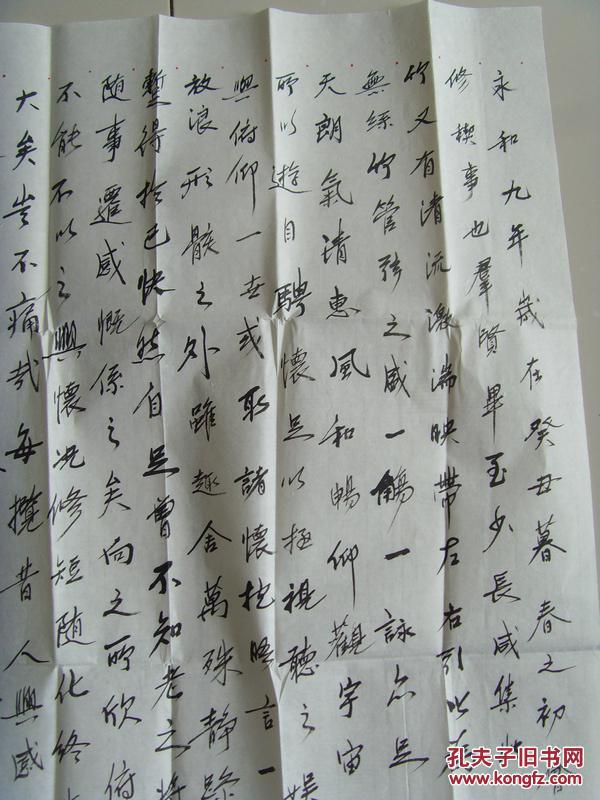 永和九年歲在癸丑暮春之初會
修禊事也羣賢畢至少長咸集此
竹又有清流激湍映帶左右引以為
無絲竹管弦之盛一觴一詠亦足
天朗氣清惠風和暢仰觀宇宙
所以遊目騁懷足以極視聽之娛
與俯仰一世或取諸懷抱悟言一
放浪形骸之外雖趣舍萬殊靜躁
暫得於己快然自足曾不知老之將
随事遷感慨係之矣向之所欣俯
不能不以之興懷况修短随化終
大矣豈不痛哉每攬昔人興感
孔夫子旧书网
www.kongfz.com